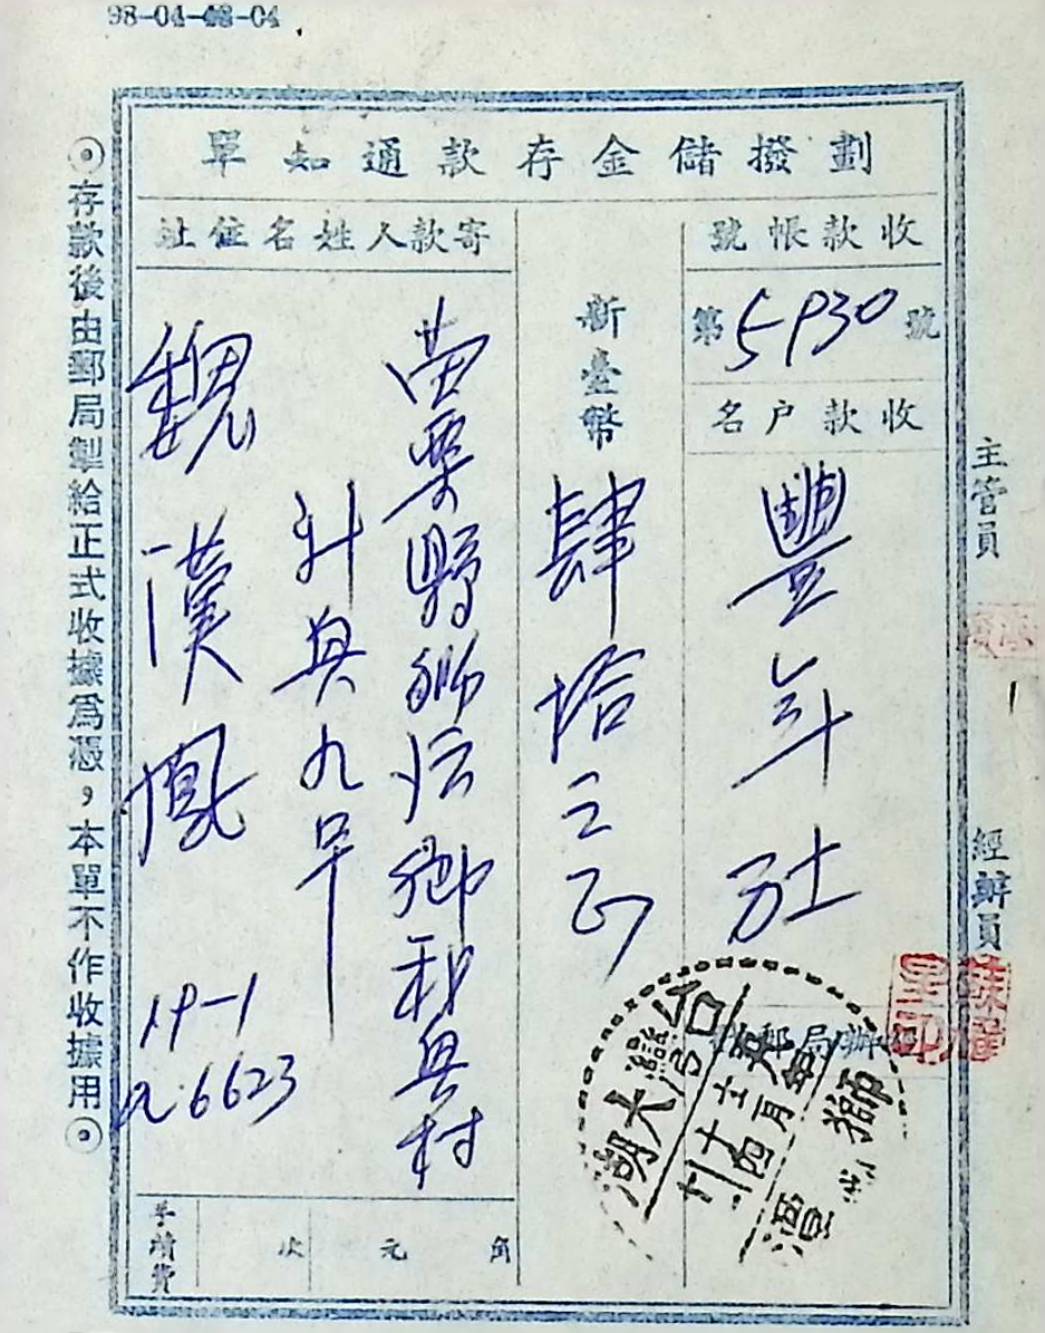 98-04-42-04
劃撥儲金存款通知單
收款帳號
第5930號
收款户名
豐年社
新臺幣
肆拾元正
寄款人姓名住址
苗栗縣獅潭鄉新興村
九
魏漢鳳
19-1
6623
手續費
次 元 角
主管員
經辦員
郵局辦
台灣大湖
月
獅潭
◎存款後由郵局掣給正式收據為憑，本單不作收據用◎